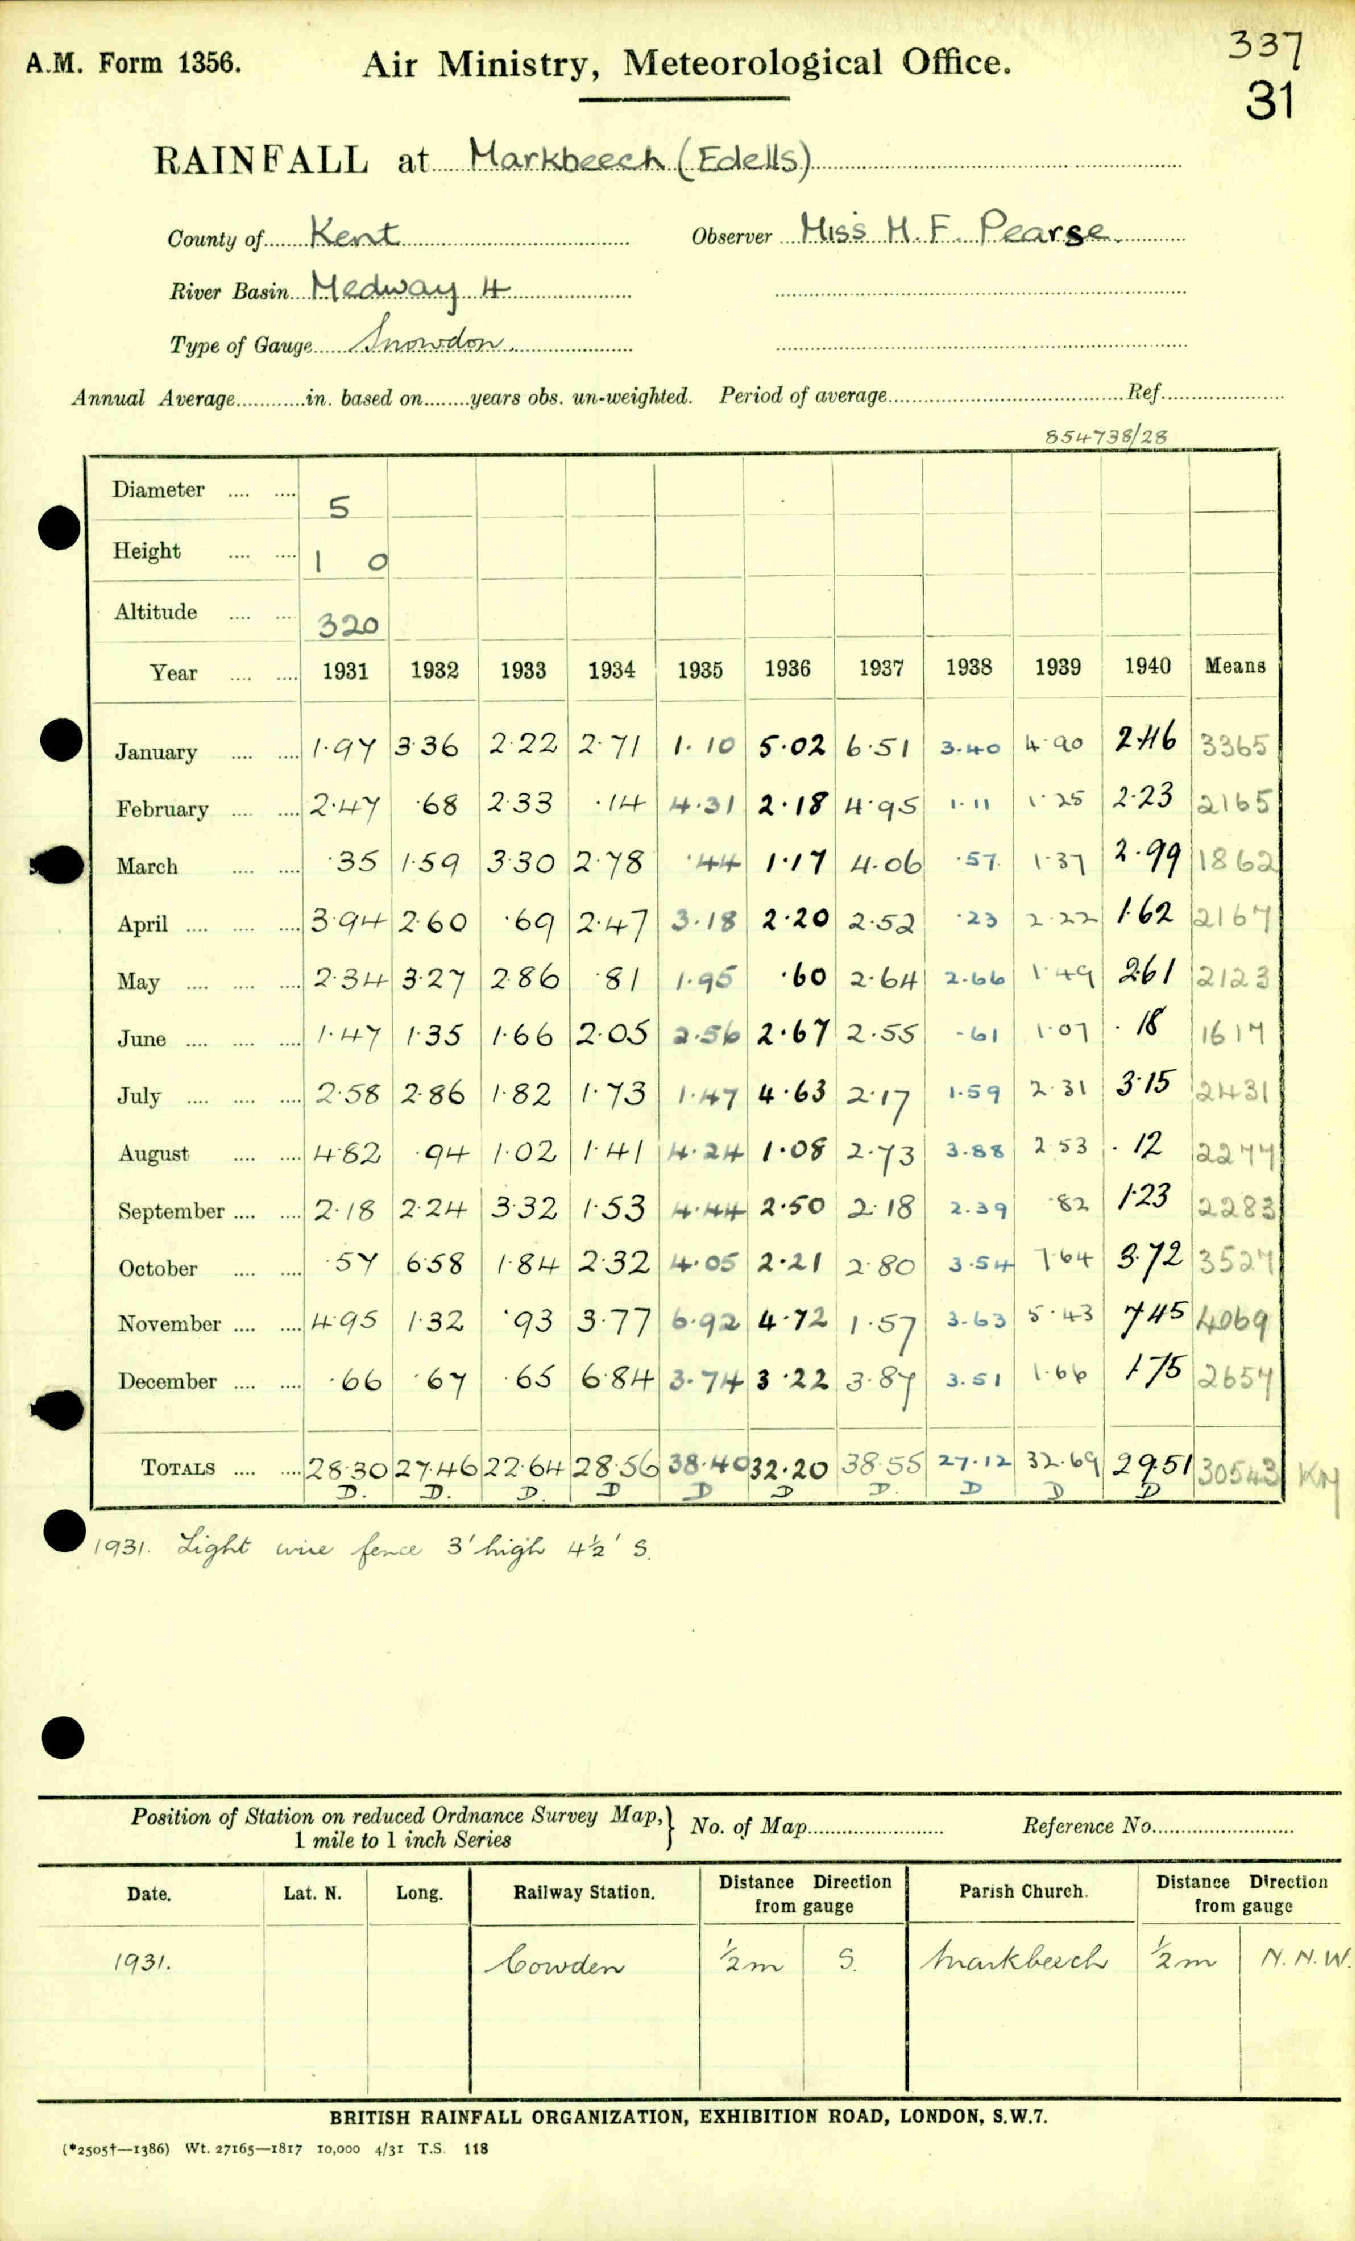 A.M. Form 1356.
Air Ministry, Meteorological Office.
337
31
RAINFALL at Markbeech (Edells)
County of Kent Observer Miss H. F. Pearse.
River Basin Medway 4
Type of Gauge Snowdon.
Annual Average............in. based on........years obs. un-weighted. Period of average.................... Ref....................
854738/28
Diameter .... .... 5
Height .... .... 1 0
Altitude .... .... 320
Year .... .... 1931 1932 1933 1934 1935 1936 1937 1938 1939 1940 Means
January .... .... 1·97 3·36 2·22 2·71 1·10 5·02 6·51 3·40 4·90 2·46 3365
February .... .... 2·47 ·68 2·33 ·14 4·31 2·18 4·95 1·11 1·25 2·23 2165
March .... .... ·35 1·59 3·30 2·78 ·44 1·17 4·06 ·57 1·37 2·99 1862
April .... .... .... 3·94 2·60 ·69 2·47 3·18 2·20 2·52 ·23 2·22 1·62 2167
May .... .... .... 2·34 3·27 2·86 ·81 1·95 ·60 2·64 2·66 1·49 2·61 2123
June .... .... .... 1·47 1·35 1·66 2·05 2·56 2·67 2·55 ·61 1·07 ·18 1617
July .... .... .... 2·58 2·86 1·82 1·73 1·47 4·63 2·17 1·59 2·31 3·15 2431
August .... .... 4·82 ·94 1·02 1·41 4·24 1·08 2·73 3·88 2·53 ·12 2277
September .... .... 2·18 2·24 3·32 1·53 4·44 2·50 2·18 2·39 ·82 1·23 2283
October .... .... ·57 6·58 1·84 2·32 4·05 2·21 2·80 3·54 7·64 3·72 3527
November .... .... 4·95 1·32 ·93 3·77 6·92 4·72 1·57 3·63 5·43 7·45 4069
December .... .... ·66 ·67 ·65 6·84 3·74 3·22 3·87 3·51 1·66 1·75 2657
TOTALS .... .... 28·30 27·46 22·64 28·56 38·40 32·20 38·55 27·12 32·69 29·51 30543
D. D. D. D D D D. D D D
1931. Light wire fence 3' high 4½' S.
Position of Station on reduced Ordnance Survey Map,} No. of Map........................ Reference No.........................
1 mile to 1 inch Series
Date. Lat. N. Long. Railway Station. Distance Direction from gauge Parish Church. Distance Direction from gauge
1931. Cowden ½m S. Markbeech ½m N.N.W.
BRITISH RAINFALL ORGANIZATION, EXHIBITION ROAD, LONDON, S.W.7.
(*2505†—1386) Wt. 27165—1817 10,000 4/31 T.S. 118